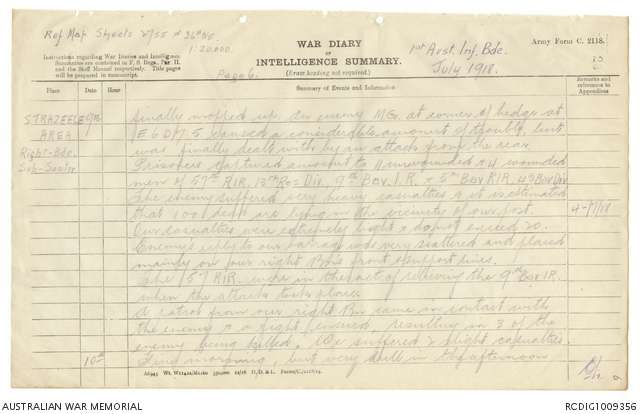 Ref Map Sheets
1:20,000.
1st Aust. Inf. Bde.
July 1918.
Page 6.
WAR DIARY
of
INTELLIGENCE SUMMARY.
(Erase heading not required.)
Army Form C. 2118.
Instructions regarding War Diaries and Intelligence
Summaries are contained in F. S. Regs., Part II.
and the Staff Manual respectively. Title pages
will be prepared in manuscript.
Place Date Hour Summary of Events and Information Remarks and references to Appendices
STRAZEELE
AREA
Right Bde.
Sub-Sector
finally mopped up. An enemy MG. at corner of hedge at
caused a considerable amount of trouble, but
was finally dealt with by an attack from the rear.
Prisoners captured amount to 11 unwounded & 4 wounded
men of RIR, Div, 9th Bav. I.R. & 5th Bav RIR, 4th Bav Div
The enemy suffered very heavy casualties & it is estimated
that 100 dead are lying in the vicinity of our post.
Our casualties were extremely light & do not exceed 20.
Enemy's reply to our barrage was very scattered and placed
mainly on our right Bn's front & support lines.
The 157 RIR. were in the act of relieving the 9th Bav IR.
when the attack took place.
A patrol from our right Bn came in contact with
the enemy & a fight ensued, resulting in 3 of the
enemy being killed. We suffered 2 slight casualties.
10th Fine morning, but very dull in the afternoon
AUSTRALIAN WAR MEMORIAL
RCDIG1009356